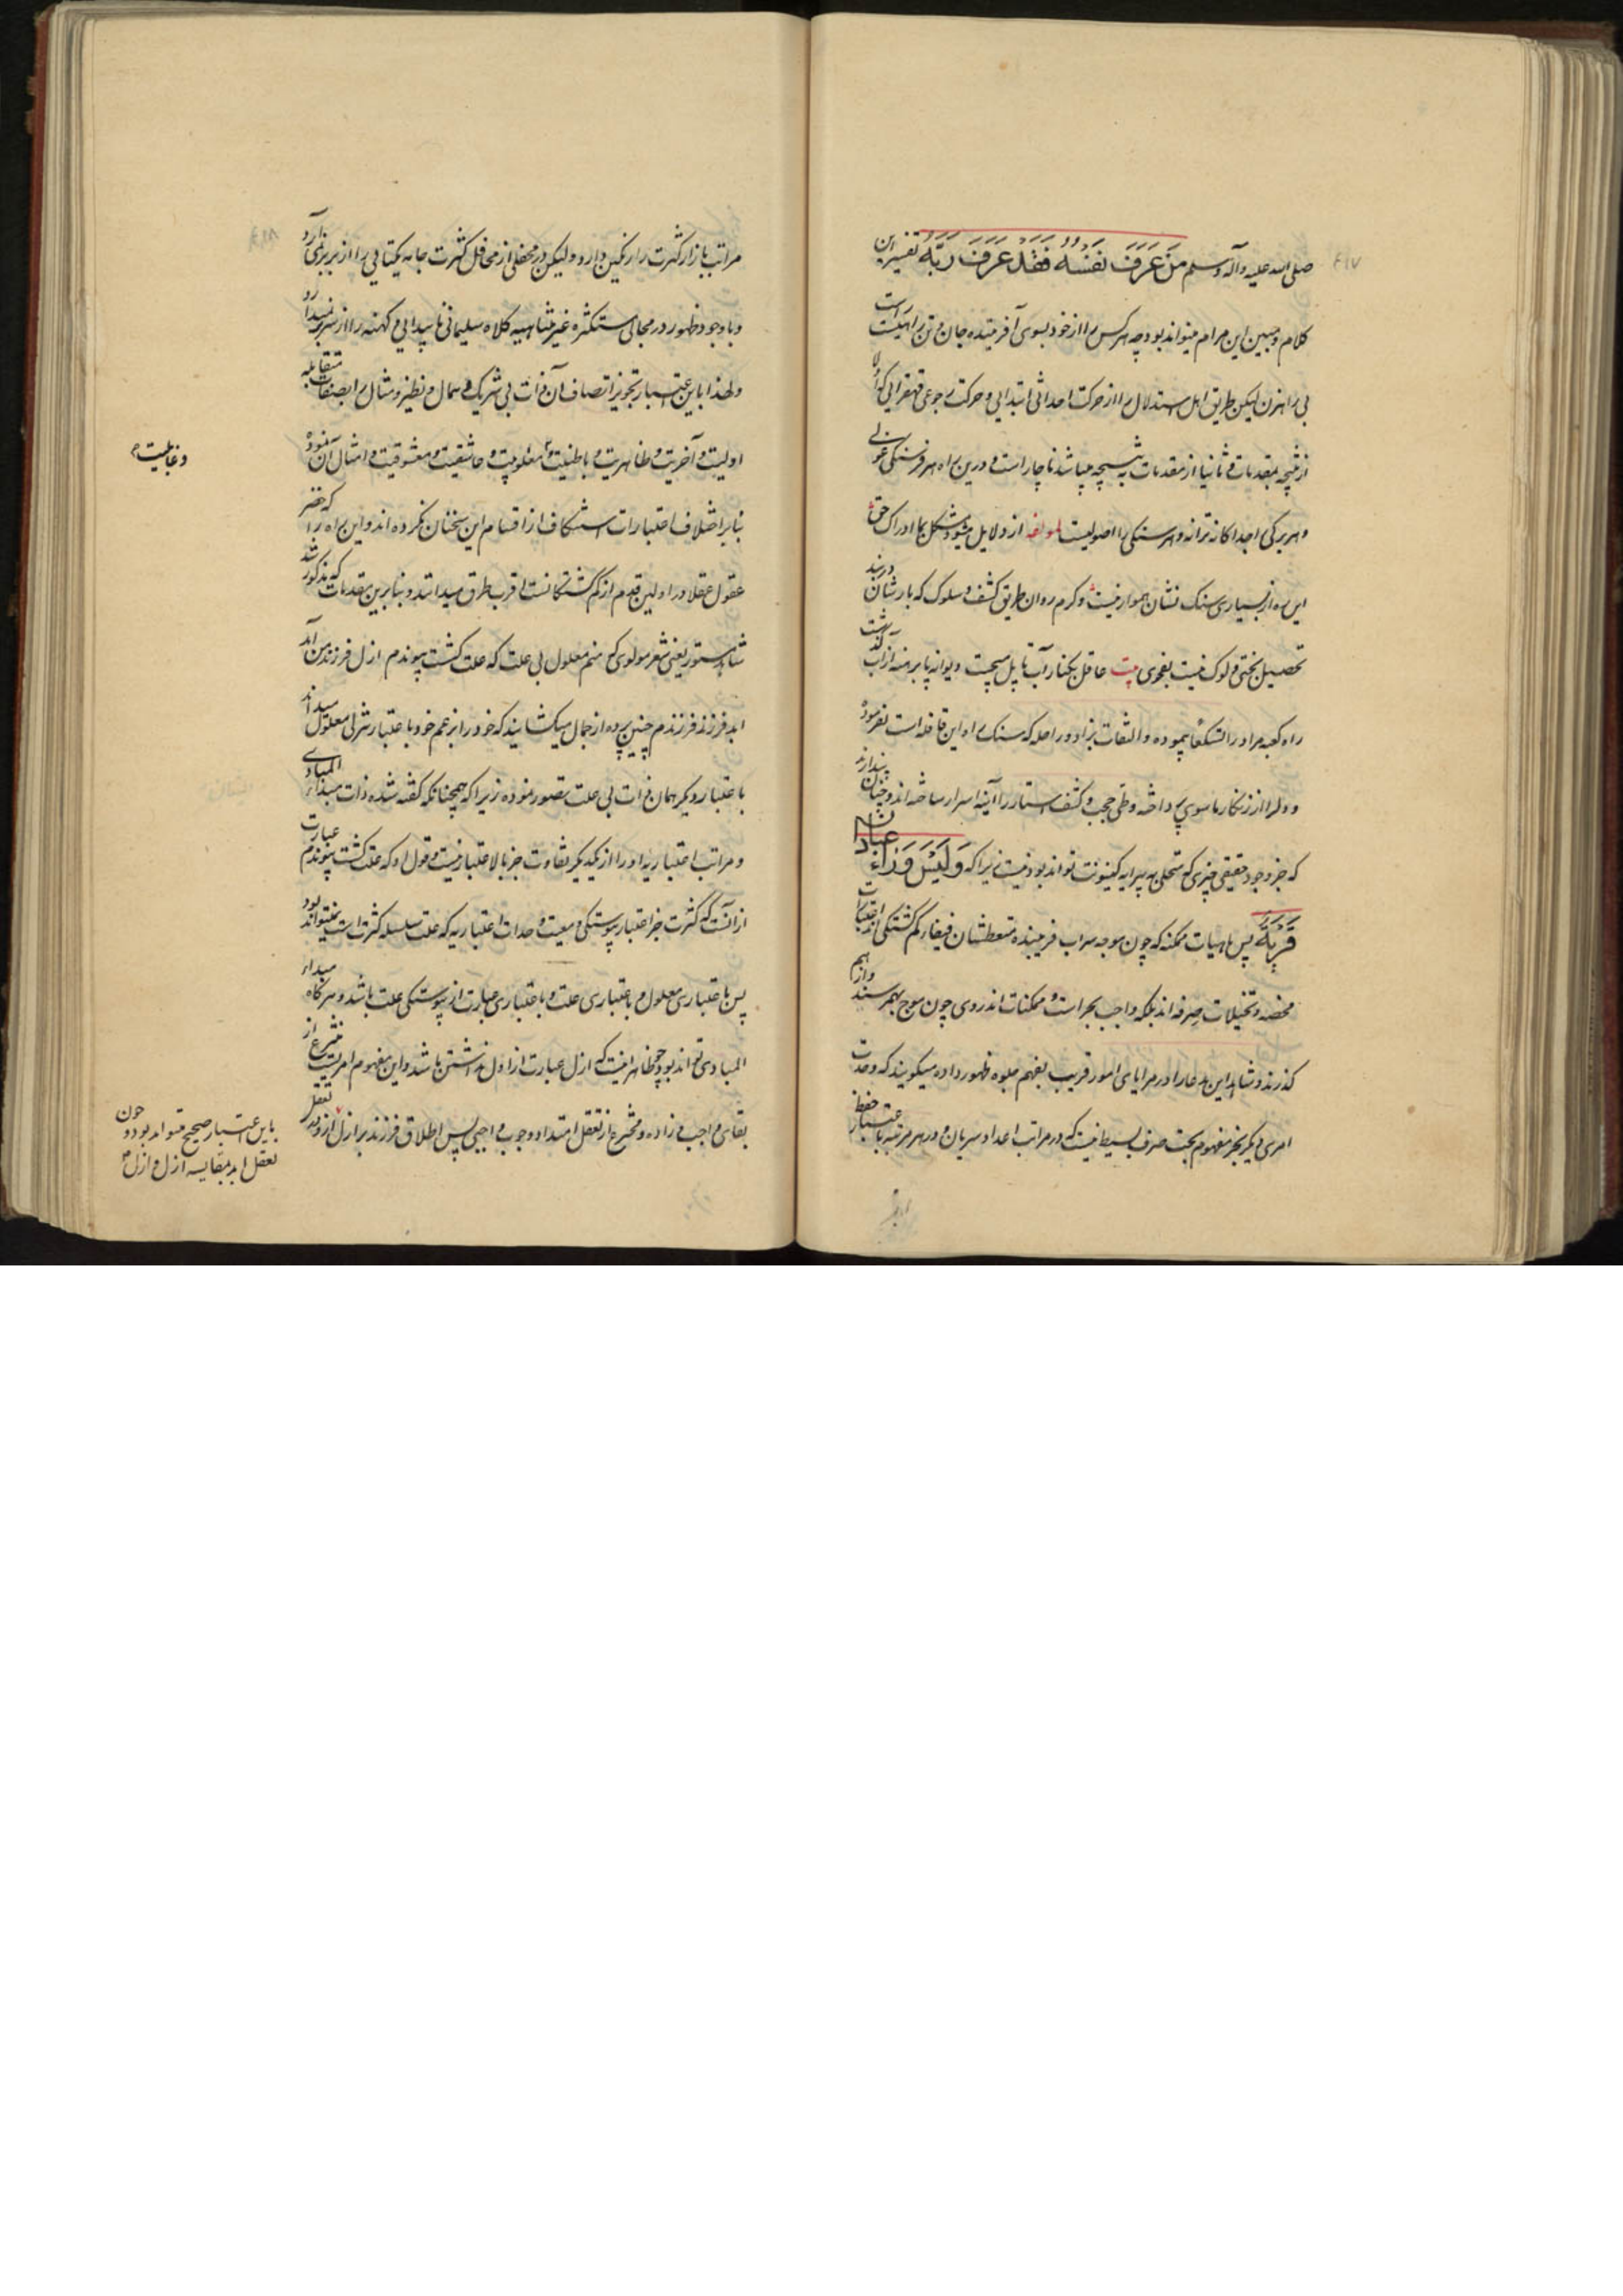 صلی الله علیه و آله و سلم مَنْ عَرَفَ نَفْسَهُ فَقَدْ عَرَفَ رَبَّهُ تفسیر این
کلام و مبین این مرام میتواند بود چه هرکس را از خود بسوی آفریننده جان و تن راهیست
بی راهزن لیکن طریق اهل استدلال را از حرکت احداثی ابتدایی و حرکت رجوعی قهقرایی که اولا
از نتیجه بمقدمات و ثانیا از مقدمات به نتیجه میباشد ناچار است و درین راه هر فرسنگی غولی
و هر برکی را جداکانه ترانه و هر سنکی را اصولیست از دلایل میشود مشکل بما ادراک حق
این ره از بسیاری سنک نشان هموار نیست و کرم روان طریق کشف و سلوک که بارشان در بند
تحصیل بختی و لوک نیست بفحوی بیت عاقل بکنار آب تا پل میجست دیوانه پا برهنه از آب گذشت
راه کعبه مراد را پیموده و التفات بزاد و راحله که سنک راه این قافله است نفرموده
و دل را از زنکار ماسوی پرداخته وطی حجب و کشف استار را آینه اسرار ساخته اند و چنان پندارند
که جز وجود حقیقی چیزی که متحلی به پیرایه کینونت تواند بود نیست زیرا که وَلَیْسَ وَرَاءَ عبادان
قَرْیَةٌ پس ماهیات ممکنه که چون موجه سراب فریبنده متعطشان فیفاء کم کشتگی اند اعتبارات
محضه و تخیلات صرفه اند بلکه واجب بحر است و ممکنات اندر وی چون موج بهم رسند و از هم
کذرند و شاهد این مدعا را در مرایای امور قریب بفهم جلوه ظهور داده میکویند که وحدت
امری دیکر بجز مفهوم بحت صرف بسیط نیست که در مراتب اعداد سریان و در هر مرتبه باعتبار حفظ
مراتب بازار کثرت را رنکین دارد و لیکن در محفلی از محافل کثرت جامه یکتایی را از بر بر نمی آرد
و با وجود ظهور در مجالی متکثره غیر متناهیه کلاه سلیمانی ناپیدایی کهنه را از سر بر نمیدارد
و لهذا باین اعتبار تجویز اتصاف آن ذات بی شریک و همال و نظیر و مثال را بصفات متقابله
اولیت و آخریت و ظاهریت و باطنیت و معلومیت و عاشقیت و معشوقیت و امثال آن نموده
بنابر اختلاف اعتبارات استنکاف از اقسام این سخنان نکرده اند و این راه را که خضر
عقول عقلا در اولین قدم از کم کشتکانست اقرب طرق میدانند و بنابرین مقدمات که مذکور شد
شاهد مستور یعنی شعر مولوی که منم معلول بی علت که علت کشت پیوندم ازل فرزند من آمد
ابد فرزند فرزندم چنین پرده از جمال میکشاید که خود را بزعم خود باعتبار تنزلی معلول میداند
باعتبار دیکر همان ذات بی علت تصور نموده زیرا که همچنانکه کفته شده ذات مبداء المبادی
و مراتب اعتباریه او را از یکدیکر تفاوت جز بالاعتبار نیست و قول او که علت کشت پیوندم عبارت
از آنست که کثرت جز اعتبار پیوستکی و معیت وحدات اعتباریه که علت سلسله کثرت است نمیتواند بود
پس باعتباری معلول و باعتباری علت و باعتباری عبارت از پیوستکی علت باشد و هر کاه مبداء
المبادی تواند بود چه ظاهر نیست که ازل عبارت از اول نداشتن باشد و این مفهوم امریست منتزع از
بقای واجب زاده و مخترع از تعقل امتداد وجوب واجبی پس اطلاق فرزند بر ازل از وی
و عاطبیت
باین اعتبار صحیح میتواند بود و چون
تعقل ابد بمقایسه ازل و ازل